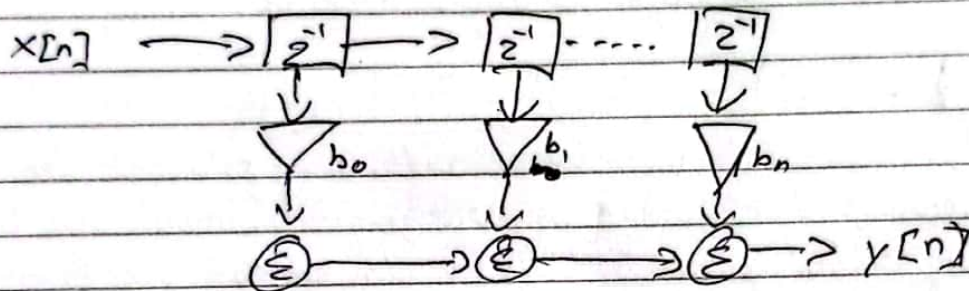 x[n] z⁻¹ z⁻¹ ..... z⁻¹
b₀ b₁ bₙ
Σ Σ Σ y[n]